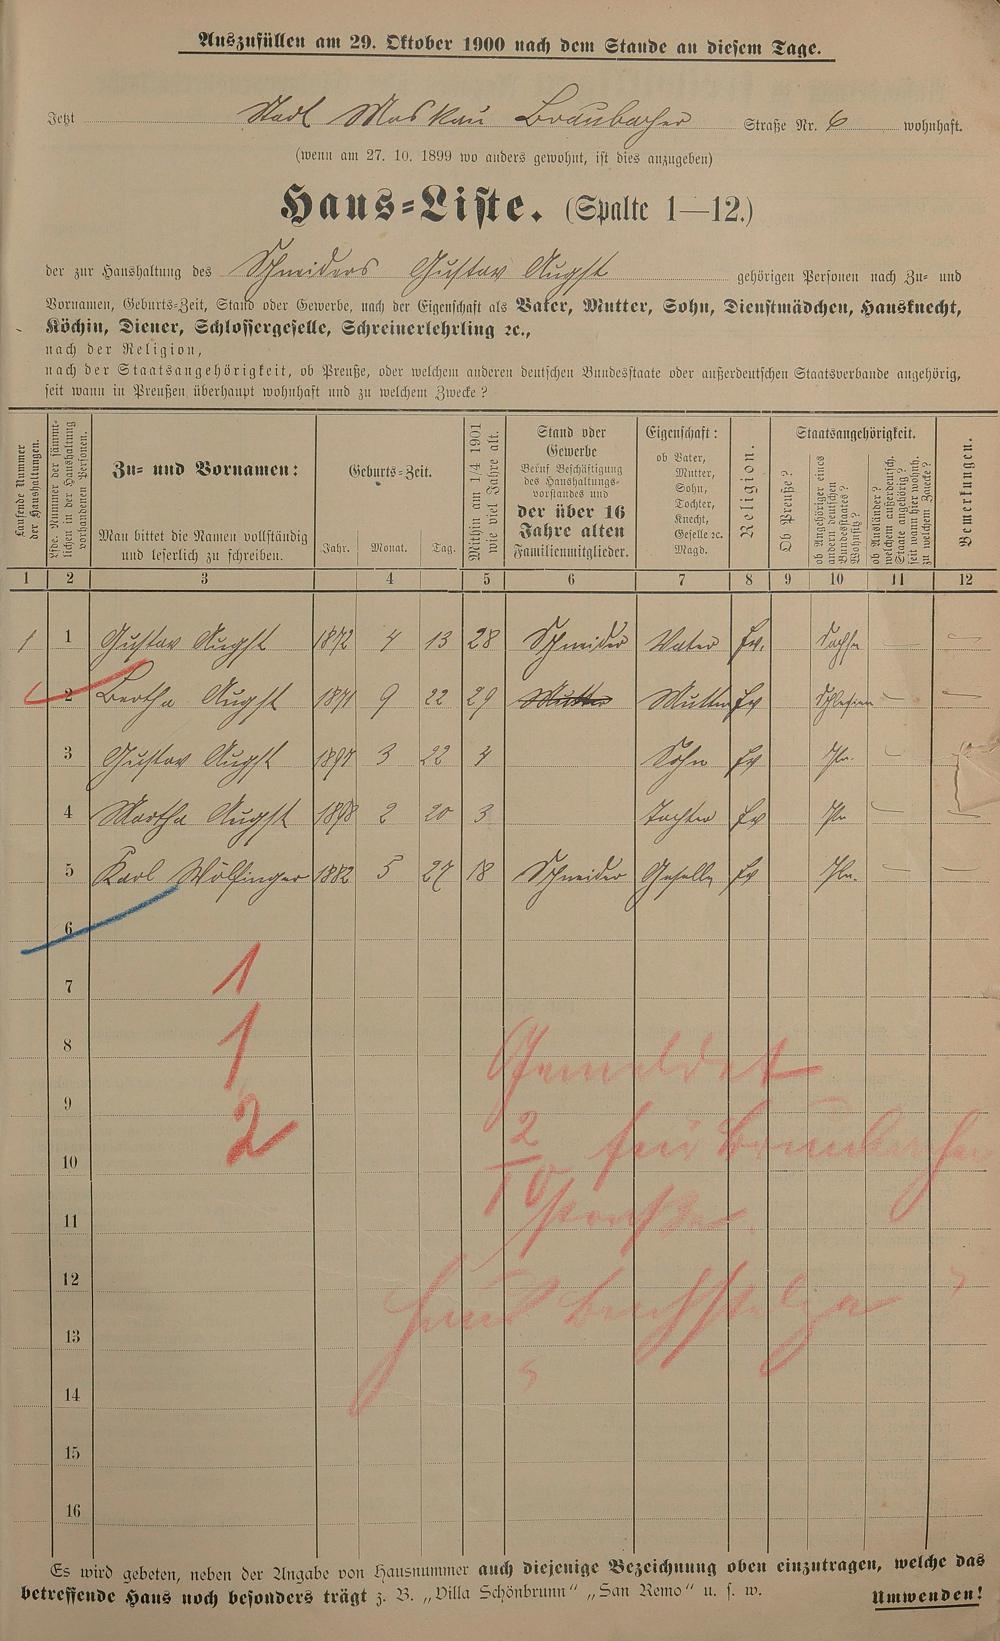 Auszufüllen am 29. Oktober 1900 nach dem Stande an diesem Tage.
Jetzt Stadt Moskau Braubacher Straße Nr. 6 wohnhaft.
(wenn am 27. 10. 1899 wo anders gewohnt, ist dies anzugeben)
Haus-Liste. (Spalte 1—12.)
der zur Haushaltung des Schneiders Gustav Augst gehörigen Personen nach Zu- und
Vornamen, Geburts-Zeit, Stand oder Gewerbe, nach der Eigenschaft als Vater, Mutter, Sohn, Dienstmädchen, Hausknecht,
Köchin, Diener, Schlossergeselle, Schreinerlehrling ꝛc.,
nach der Religion,
nach der Staatsangehörigkeit, ob Preuße, oder welchem anderen deutschen Bundesstaate oder außerdeutschen Staatsverbande angehörig,
seit wann in Preußen überhaupt wohnhaft und zu welchem Zwecke?
Laufende Nummer
der Haushaltungen.
Lfde. Nummer der sämmt-
lichen in der Haushaltung
vorhandenen Personen.
Zu- und Vornamen:
Man bittet die Namen vollständig
und leserlich zu schreiben.
Geburts-Zeit.
Jahr. Monat. Tag.
Mithin am 1/4 1901
wie viel Jahre alt.
Stand oder
Gewerbe
Beruf Beschäftigung
des Haushaltungs-
vorstandes und
der über 16
Jahre alten
Familienmitglieder.
Eigenschaft:
ob Vater,
Mutter,
Sohn,
Tochter,
Knecht,
Geselle ꝛc.
Magd.
Religion.
Staatsangehörigkeit.
Ob Preuße?
ob Angehöriger eines
andern deutschen
Bundesstaates?
Wohnsitz?
ob Ausländer?
welchem außerdeutsch.
Staate angehörig?
seit wann hier wohnh.
zu welchem Zwecke?
Bemerkungen.
1 2 3 4 5 6 7 8 9 10 11 12
1 1 Gustav Augst 1872 4 13 28 Schneider Vater Ev. Sachsn —
2 Bertha Augst 1871 9 22 29 Mutter Mutter Ev Schlesien — —
3 Gustav Augst 1897 3 22 4 Sohn Ev —
4 Martha Augst 1898 2 20 3 Tochter Ev — —
5 Karl Wölfinger 1882 5 27 18 Schneider Geselle Ev — —
6
7
1
8
1
Gemeldet
9
2
2/10 für Braubacher
10
11
Straße
12
Haus Bachstelze
13
14
15
16
Es wird gebeten, neben der Angabe von Hausnummer auch diejenige Bezeichnung oben einzutragen, welche das
betreffende Haus noch besonders trägt z. B. „Villa Schönbrunn“ „San Remo“ u. s. w. Umwenden!